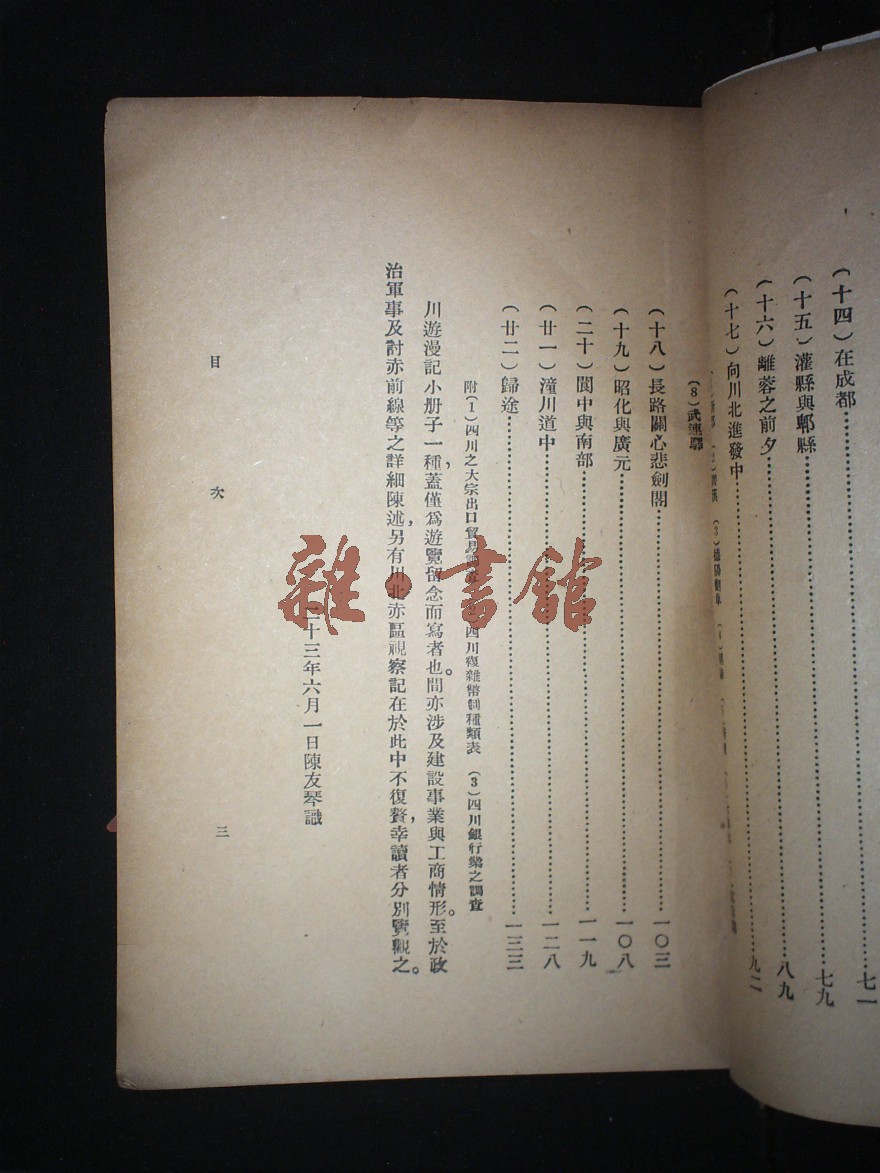 (十四)在成都……七一
(十五)灌縣與郫縣……七九
(十六)離蓉之前夕……八九
(十七)向川北進發中……九二
(8)武連驛
(十八)長路關心悲劍閣……一〇三
(十九)昭化與廣元……一〇八
(二十)閬中與南部……一一九
(廿一)潼川道中……一二八
(廿二)歸途……一三三
附(1)四川之大宗出口貿易 四川複雜幣制種類表 (3)四川銀行業之調查
川遊漫記小册子一種,蓋僅爲遊覽留念而寫者也。間亦涉及建設事業與工商情形。至於政
治軍事及討赤前線等之詳細陳述,另有川北赤區視察記在於此中不復贅,幸讀者分別覽觀之。
二十三年六月一日陳友琴識
目 次
三
雜·書館